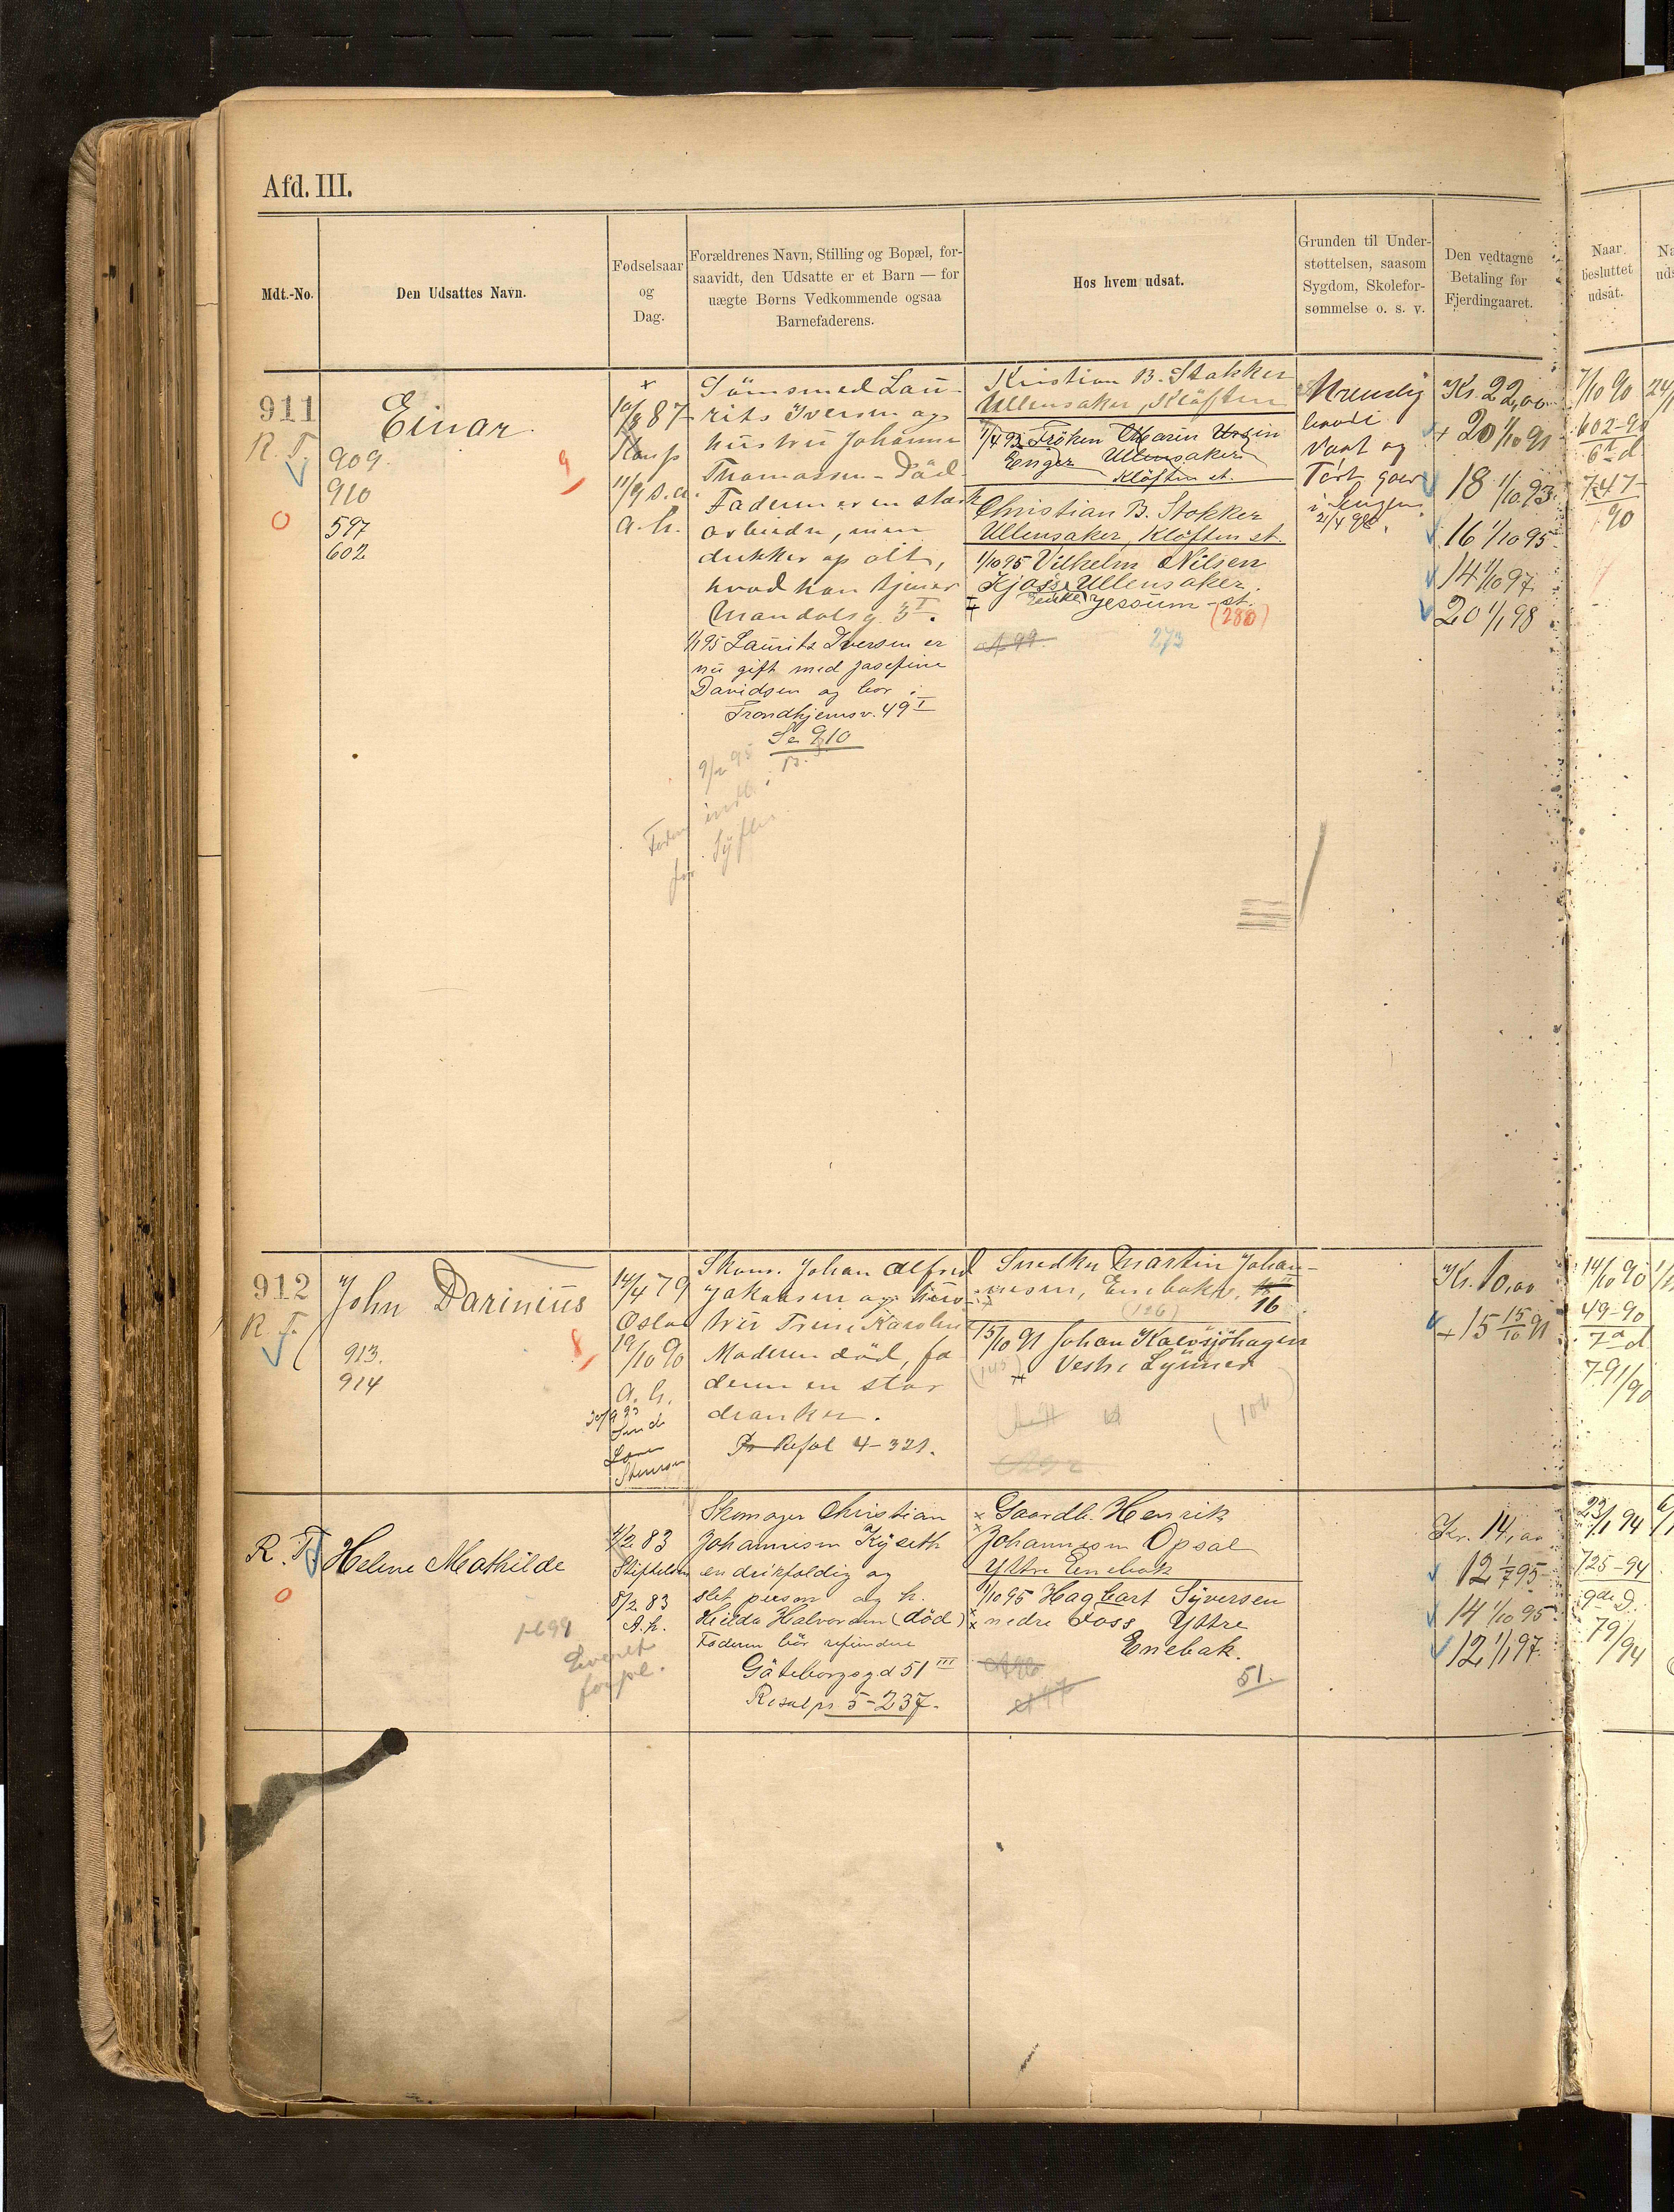 Afd. III.
Mdt.-No.
Den Udsattes Navn.
Fødselsaar
og
Dag.
Forældrenes Navn, Stilling og Bopæl, for-
saavidt, den Udsatte er et Barn — for
uægte Børns Vedkommende ogsaa
Barnefaderens.
Hos hvem udsat.
Grunden til Under-
støttelsen, saasom
Sygdom, Skolefor-
sømmelse o. s. v.
Den vedtagne
Betaling for
Fjerdingaaret.
Naar
besluttet
udsat.
911
R. T.
Einar
909
910
597
602
9
10/8 87
11/9 s.a.
a. h.
Sömsmed Lau-
rits Iversen og
hustru Johanne
Thomassen - Död
Faderen er en stærk
arbeider, men
drikker op alt,
hvad han tjener
Mandalsg. 3 I.
1/1 95 Laurits Iversen er
nu gift med Josefine
Davidsen og bor i
Trondhjemsv. 49 I
Se 910
9/2 95
Faderen indl. i
for Syfilis
Kristian B. Stokker
Ullensaker, Klöften
1/4 93 Fröken Marin Ursin
Enger Ullensaker
Klöften st.
Christian B. Stokker
Ullensaker, Klöften st.
1/10 95 Vilhelm Nilsen
Kjos Ullensaker
Jessum - st.
(280)
273
Urenslig
baade
Vaat og
Tört gaar
i Sengen
21/4 98.
Kr. 22,00
+ 20 1/10 91
18 1/10 93
16 1/10 95
14 1/10 97
20 1/1 98
7/10 90
602-90
6te d
747
90
912
R. T.
John Darinius
913.
914
8
14/4 79
Oslo
19/10 90
a. h.
Skom. Johan Alfred
Jakobsen og hus-
tru Trine Karoline
Moderen död, fa
deren en stor
dranker.
Pr Resol 4-321.
Snedker Martin Johan-
nesen, Enebak
16
(126)
15/10 91 Johan Kalvsjöhagen
Vestre Lynner
(145)
(100
Kr. 10,00
+ 15 15/10 91
14/10 90
49-90
7de d
791/90
R. T.
Helene Mathilde
4/2 83
Stiftelsen
8/2 83
A. h.
Skomager Christian
Johannesen Kyseth
en drikfældig og
slet person og h.
Hilda Halvorsen (död)
Faderen bör refundere
Göteborgsgd 51 III
Resol pr 5-237.
Gaardb. Henrik
Johannesen Opsal
Yttre Enebak
1/10 95 Hagbart Syversen
nedre Foss Yttre
Enebak.
51.
Kr. 14,00
12 1/7 95
14 1/10 95
12 1/1 97
23/1 94
725-94
9de D.
79/94